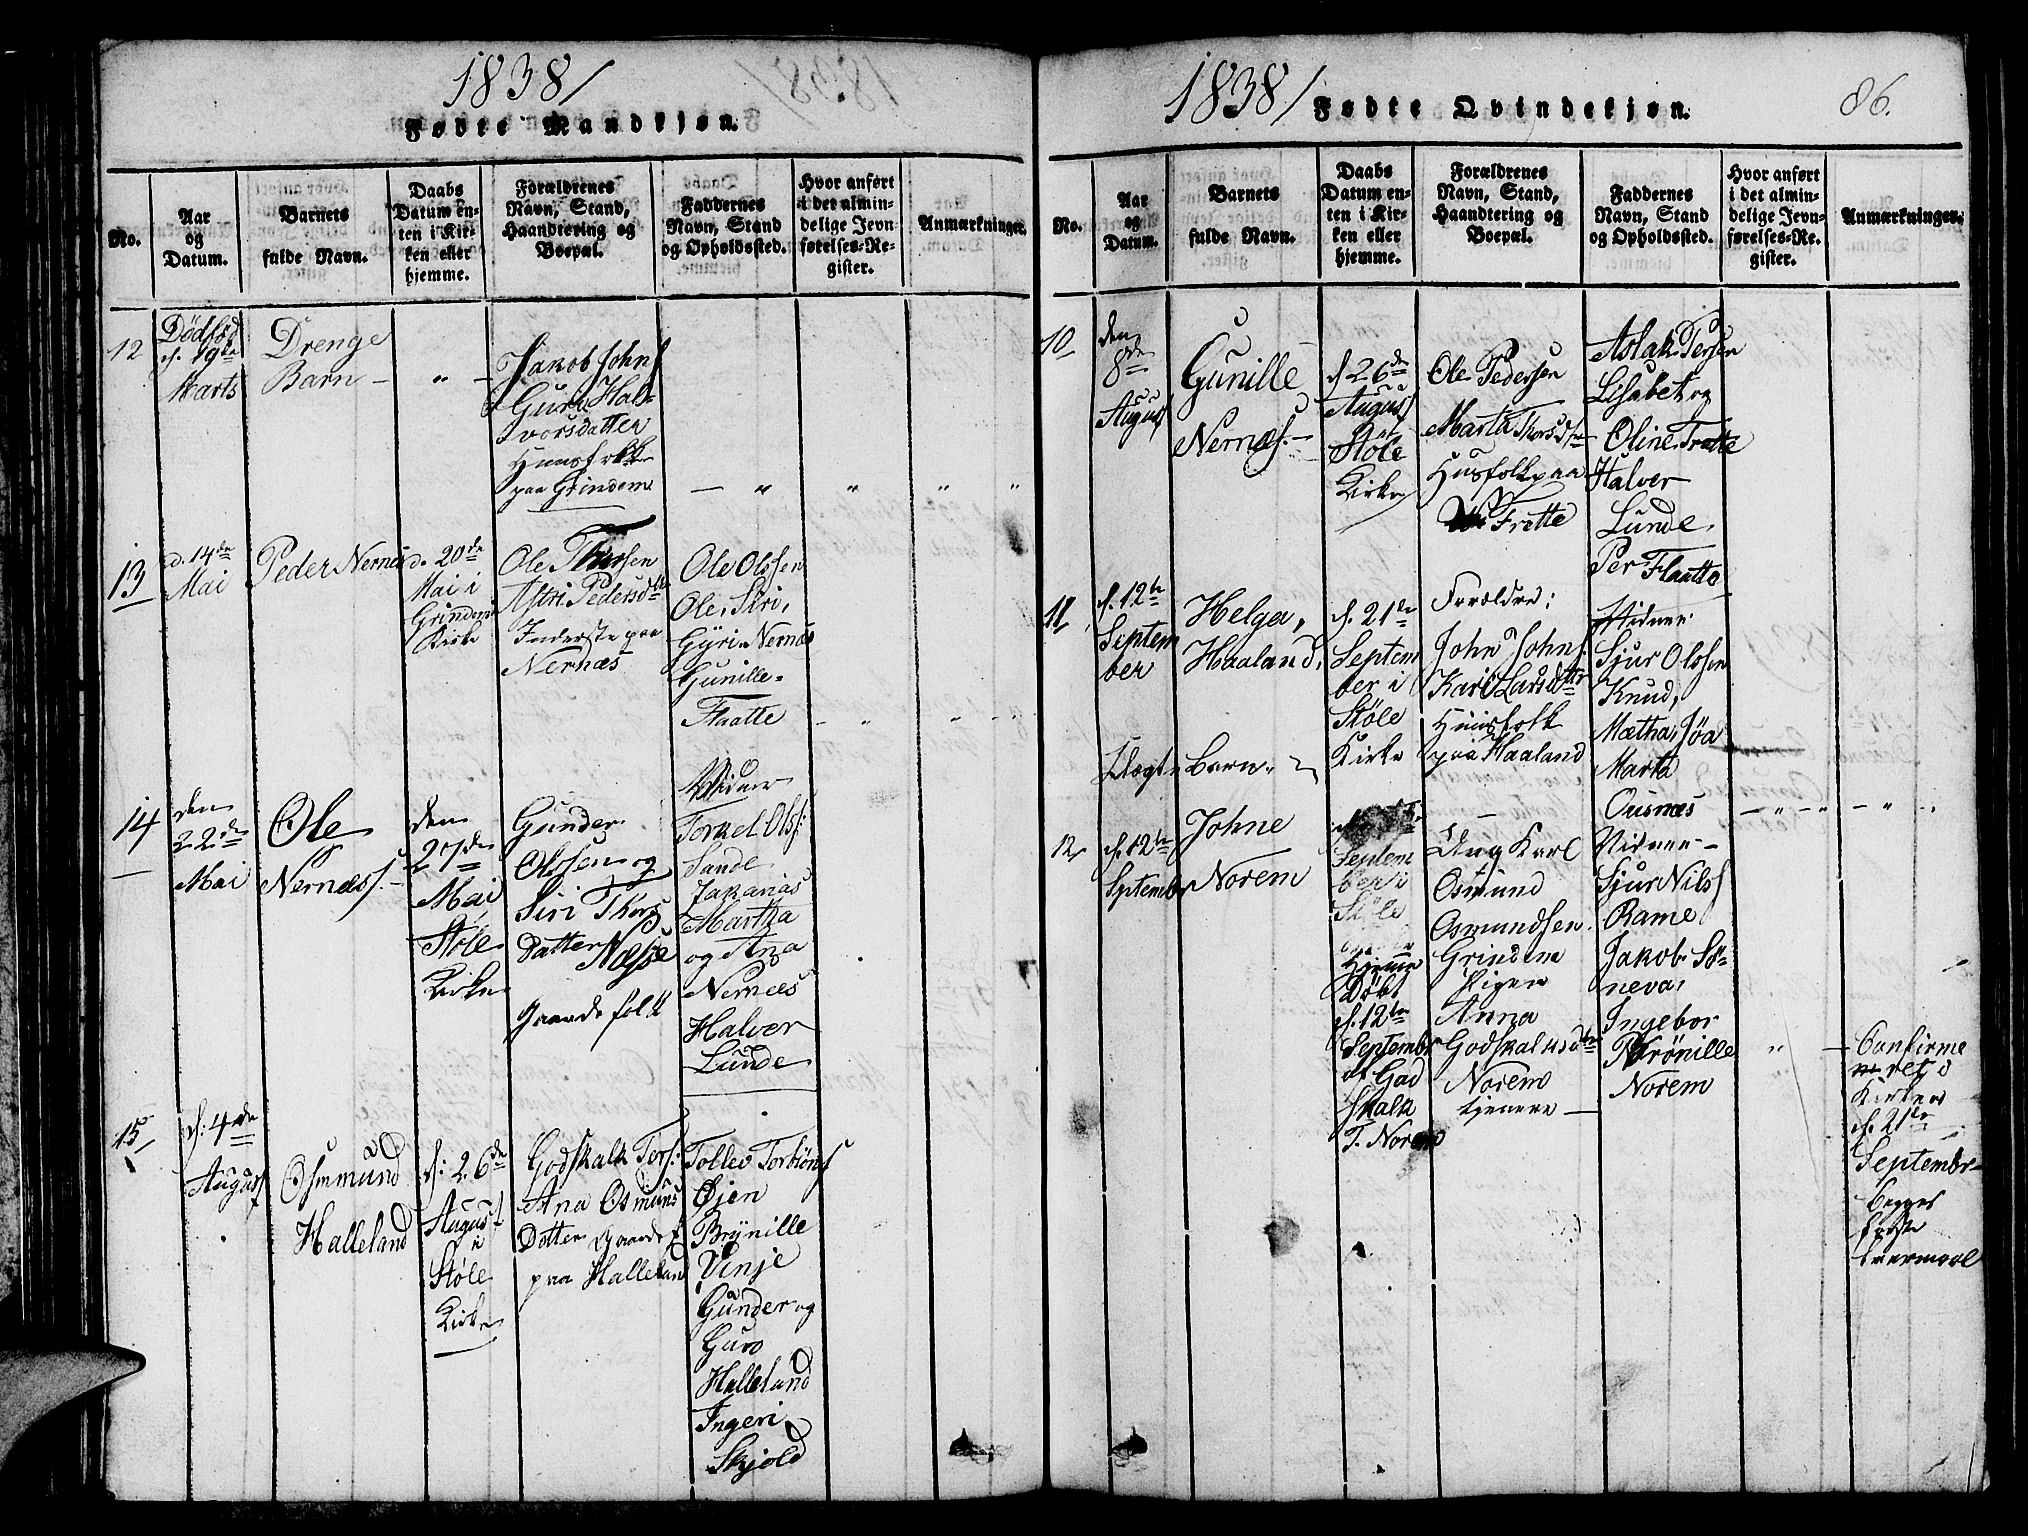 1838/
Fødte Mandkjøn.
No.
Aar
og
Datum.
Barnets
fulde Navn.
Daabs
Datum en-
ten i Kir-
ken eller
hjemme.
Forældrenes
Navn, Stand,
Haandtering og
Boepæl.
Faddernes
Navn, Stand
og Opholdssted.
Hvor anført
i det almin-
delige Jevn-
førelses-Re-
gister.
Anmærkninger.
12
Dödfød
d. 19de
Marts
Drenge
Barn –
„
Jakob Johns
Guru Hal-
vorsdatter
Huusfolk
paa Grindem
– „ „ „ „
13
d. 14de
Mai
Peder Nernæs
d. 20de
Mai i
Grindem
Kirke
Ole Thorsen
Astri Pedersdtr
Inderste paa
Nernæs
Ole Olssen
Ole, Siri,
Gyri Nernæs
Gunille
Flaatte
14
den
22de
Mai
Ole
Nernæs. –
den
27de
Mai
Støle
Kirke
Gunder
Olssen og
Siri Thors
Datter Næsse
Gaardsfolk
Vidner
Torkel Ols:
Sande
Jakarias
Martha
og Ana
Nernæs
Halver
Lunde
15
d: 4de
August
Osmmund
Halleland
d: 26de
August
i
Støle
Kirke
Godskalk Tors:
Ana Osmuns
Dotter Gaardsf
paa Halleland
Tollev Torbiøns
Øjen
Brynille
Vinje
Gunder og
Guro
Halleland
Ingeri
Skjold
1838/
Fødte Qvindekjøn.
86.
No.
Aar
og
Datum.
Barnets
fulde Navn.
Daabs
Datum en-
ten i Kir-
ken eller
hjemme.
Forældrenes
Navn, Stand,
Haandtering og
Boepæl.
Faddernes
Navn, Stand
og Opholdssted.
Hvor anført
i det almin-
delige Jevn-
førelses-Re-
gister.
Anmærkninger.
10
den
8de
August
Gunille
Nernæs. –
d 26de
August
Støle
Kirke
Ole Pedersen
Marta Thorsdtr
Husfolk paa
Fratte
Aslak Persen
Lisabet og
Oline Fratte
Halver
Lunde
Per Flaatte
11
d. 12te
Septem
ber
Helga,
Haaland,
d. 21de
Septem
ber i
Støle
Kirke
Forældre:
John Johns.
Kari Larsdtr
Huusfolk
paa Haaland
Vidner
Sjur Olssen
Knud,
Mætha, Söa
Marta
Ousnæs
Uægte Barn
12
d. 12te
September
Johne
Norem
Septem
ber i
Støle
Hjeme
Døbt
d. 12te
September
af God
Skalk
T. Norem
Ung Karl
Osmund
Osmundsen
Grindem
Pigen
Anna
Godskalksdtr
Norem
tjenere –
Vidner –
Sjur Nils
Rame
Jakob Sö-
neva,
Ingebor
Brönille
Norem
„
Confirme
ret i
Kirken
d. 21de
September
begges
første
Leiermaal